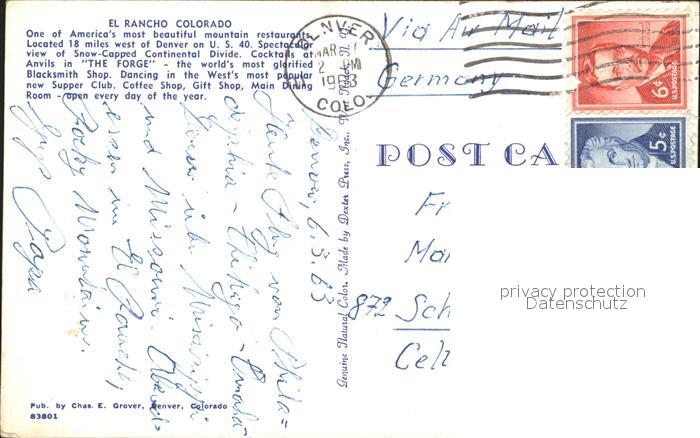 EL RANCHO COLORADO
One of America's most beautiful mountain restaurants.
Located 18 miles west of Denver on U. S. 40. Spectacular
view of Snow-Capped Continental Divide. Cocktails at
Anvils in "THE FORGE" - the world's most glorified
Blacksmith Shop. Dancing in the West's most popular
new Supper Club. Coffee Shop, Gift Shop, Main Dining
Room - open every day of the year.
Denver, 6.3.63
Heute Flug von Phila=
delphia - Chikago - Omaha-
Denver über Mississippi
und Missouri. Abend=
essen in El Rancho,
Rocky Mountains.
Papa
Pub. by Chas. E. Grover, Denver, Colorado
83801
Genuine Natural Color. Made by Dexter Press, Inc.
DENVER
MAR
2 PM
1963
COLO.
Via Air Mail
Germany
6¢
U.S. POSTAGE
5¢
U.S. POSTAGE
POST CA
Fr
Mar
872 Sch
Cell
privacy protection
Datenschutz